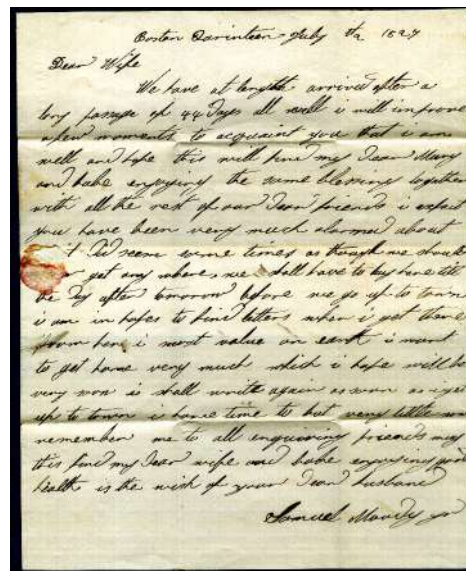 Boston Quarinteen July 1827
Dear Wife
We have at length arrived after a
long passage of 44 Days all well i will improve
a few moments to acquaint you that i am
well and hope this will find my Dear Mary
and babe enjoying the same blessing together
with all the rest of our Dear friends i expect
you have been very much alarmed about
Did seem some times as though we should
get any where, we shall have to lay here till
the Day after tomorrow before we go up to town
i am in hopes to find letters when i get there
from her i most value on earth i want
to get home very much which i hope will be
very soon i shall write again as soon as i get
up to town i have time to but very little
remember me to all enquiring friends may
this find my Dear wife and babe enjoying good
health is the wish of your Dear husband
Samuel Moody jr